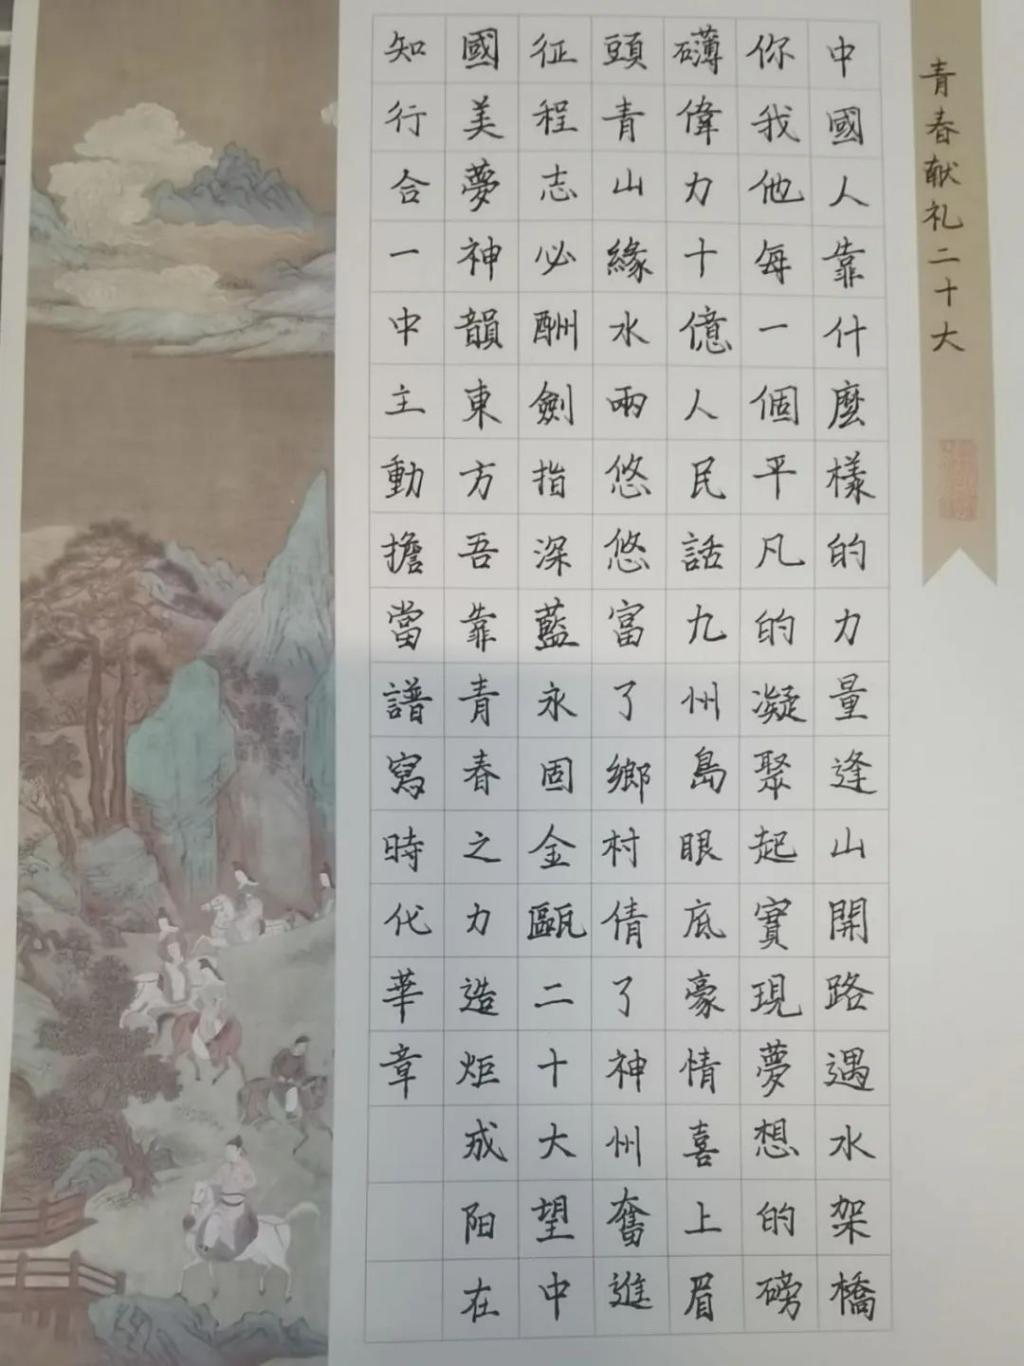 青春献礼二十大
中國人靠什麼樣的力量逢山開路遇水架橋
你我他每一個平凡的凝聚起實現夢想的磅
礴偉力十億人民話九州島眼底豪情喜上眉
頭青山緣水兩悠悠富了鄉村倩了神州奮進
征程志必酬劍指深藍永固金甌二十大望中
國美夢神韻東方吾靠青春之力造炬成阳在
知行合一中主動擔當譜寫時代華章